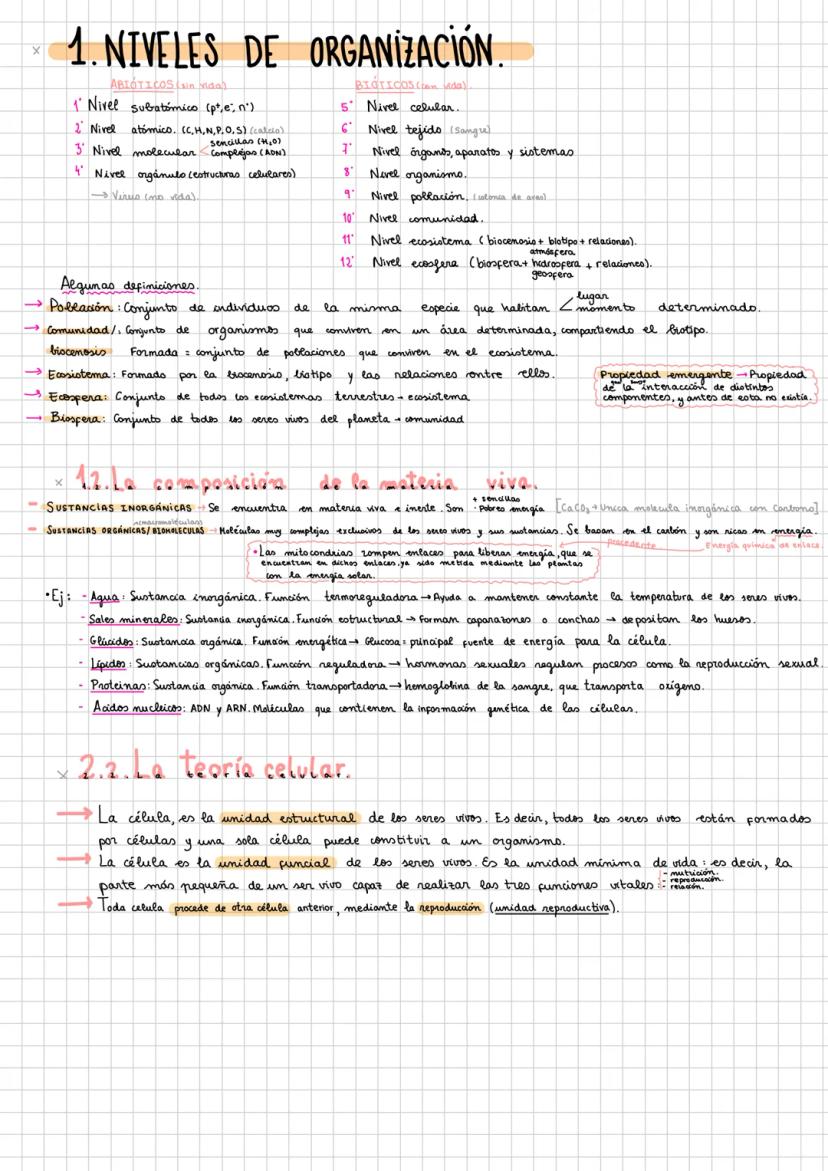 1. NIVELES DE ORGANIZACIÓN.
ABIÓTICOS (sin vida)
1º Nivel subatómico (p+, e-, nº)
2º Nivel atómico. (C, H, N, P, O, S) (calcio)
3º Nivel molecular < sencillas (H₂O)
complejas (ADN)
4º Nivel orgánulo (estructuras celulares)
→ Virus (no vida).
BIÓTICOS (con vida).
5º Nivel celular.
6º Nivel tejido (Sangre)
7º Nivel órganos, aparatos y sistemas
8º Nivel organismo.
9º Nivel población. (colonia de aves)
10º Nivel comunidad.
11º Nivel ecosistema (biocenosis + biotipo + relaciones).
12º Nivel ecosfera (biosfera + atmósfera hidrosfera geosfera + relaciones).
Algunas definiciones.
→ Población: Conjunto de individuos de la misma especie que habitan < lugar
momento determinado.
→ Comunidad/: Conjunto de organismos que conviven en un área determinada, compartiendo el biotipo.
biocenosis Formada = conjunto de poblaciones que conviven en el ecosistema.
→ Ecosistema: Formado por la biocenosis, biotipo y las relaciones entre ellos.
→ Ecosfera: Conjunto de todos los ecosistemas terrestres → ecosistema
→ Biosfera: Conjunto de todos los seres vivos del planeta → comunidad
Propiedad emergente → Propiedad
de la interacción de distintos
componentes, y antes de esta no existía.
1.2. La composición de la materia viva.
- SUSTANCIAS INORGÁNICAS → Se encuentra en materia viva e inerte. Son + sencillas
· Pobres energía [CaCO₃ → Única molécula inorgánica con Carbono]
(macromoléculas)
- SUSTANCIAS ORGÁNICAS/BIOMOLÉCULAS → Moléculas muy complejas exclusivas de los seres vivos y sus sustancias. Se basan en el carbón y son ricas en energía.
procedente
Energía química de enlace.
• Las mitocondrias rompen enlaces para liberar energía, que se
encuentran en dichos enlaces, ya sido metida mediante las plantas
con la energía solar.
• Ej: - Agua: Sustancia inorgánica. Función termoreguladora → Ayuda a mantener constante la temperatura de los seres vivos.
- Sales minerales: Sustancia inorgánica. Función estructural → Forman caparazones o conchas → depositan los huesos.
- Glúcidos: Sustancia orgánica. Función energética → Glucosa = principal fuente de energía para la célula.
- Lípidos: Sustancias orgánicas. Función reguladora → hormonas sexuales regulan procesos como la reproducción sexual.
- Proteínas: Sustancia orgánica. Función transportadora → hemoglobina de la sangre, que transporta oxígeno.
- Ácidos nucleicos: ADN y ARN. Moléculas que contienen la información genética de las células.
2.2. La teoría celular.
→ La célula, es la unidad estructural de los seres vivos. Es decir, todos los seres vivos están formados
por células y una sola célula puede constituir a un organismo.
→ La célula es la unidad funcial de los seres vivos. Es la unidad mínima de vida: es decir, la
parte más pequeña de un ser vivo capaz de realizar las tres funciones vitales:
- nutrición.
- reproducción.
- relación.
→ Toda celula procede de otra célula anterior, mediante la reproducción (unidad reproductiva).